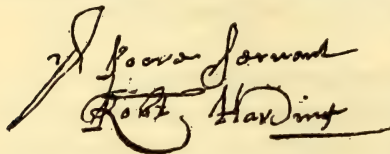 yr Poore Servant
Robt Hardings